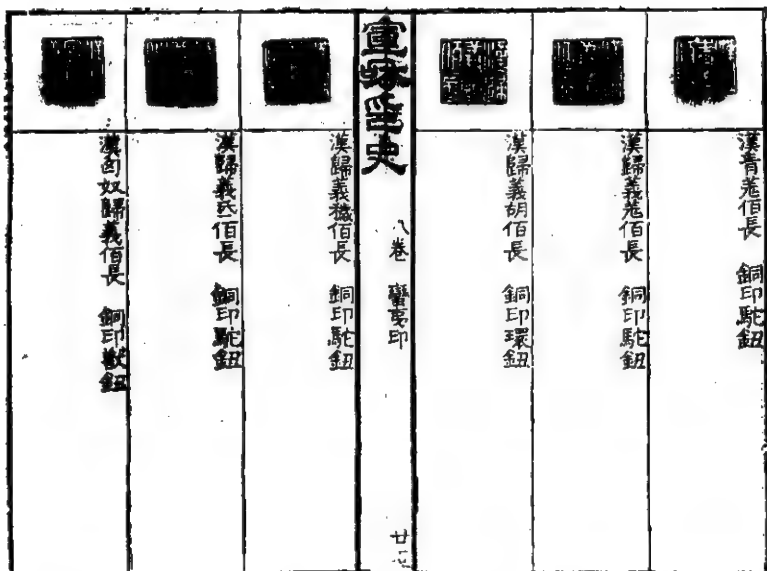 漢青羌佰長 銅印駝鈕
漢歸義羌佰長 銅印駝鈕
漢歸義胡佰長 銅印環鈕
宣和印史 八卷 蠻夷印 廿
漢歸義穢佰長 銅印駝鈕
漢歸義氐佰長 銅印駝鈕
漢匈奴歸義佰長 銅印獸鈕